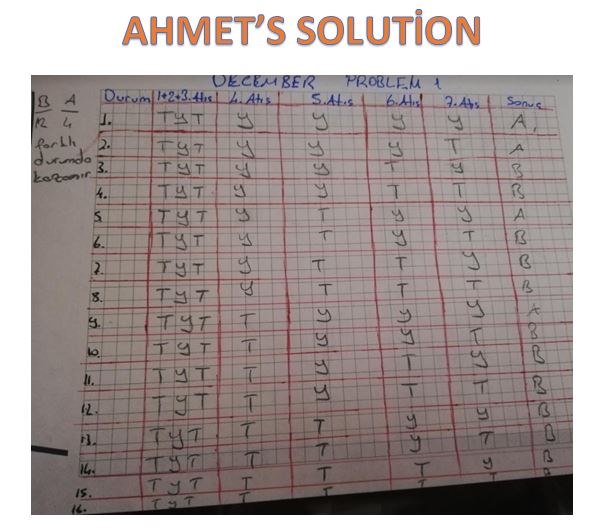 AHMET'S SOLUTİON
DECEMBER PROBLEM 1
B A
12 4
farklı
durumda
kazanır.
Durum 1+2+3.Atış 4. Atış 5. Atış 6. Atış 7. Atış Sonuç
1. T Y T Y Y Y Y A
2. T Y T Y Y Y T A
3. T Y T Y Y T Y B
4. T Y T Y Y T T B
5. T Y T Y T Y Y A
6. T Y T Y T Y T B
7. T Y T Y T T Y B
8. T Y T Y T T T B
9. T Y T T Y Y Y A
10. T Y T T Y Y T B
11. T Y T T Y T Y B
12. T Y T T Y T T B
13. T Y T T T Y Y B
14. T Y T T T Y T B
15. T Y T T T T Y B
16. T Y T T T T T B